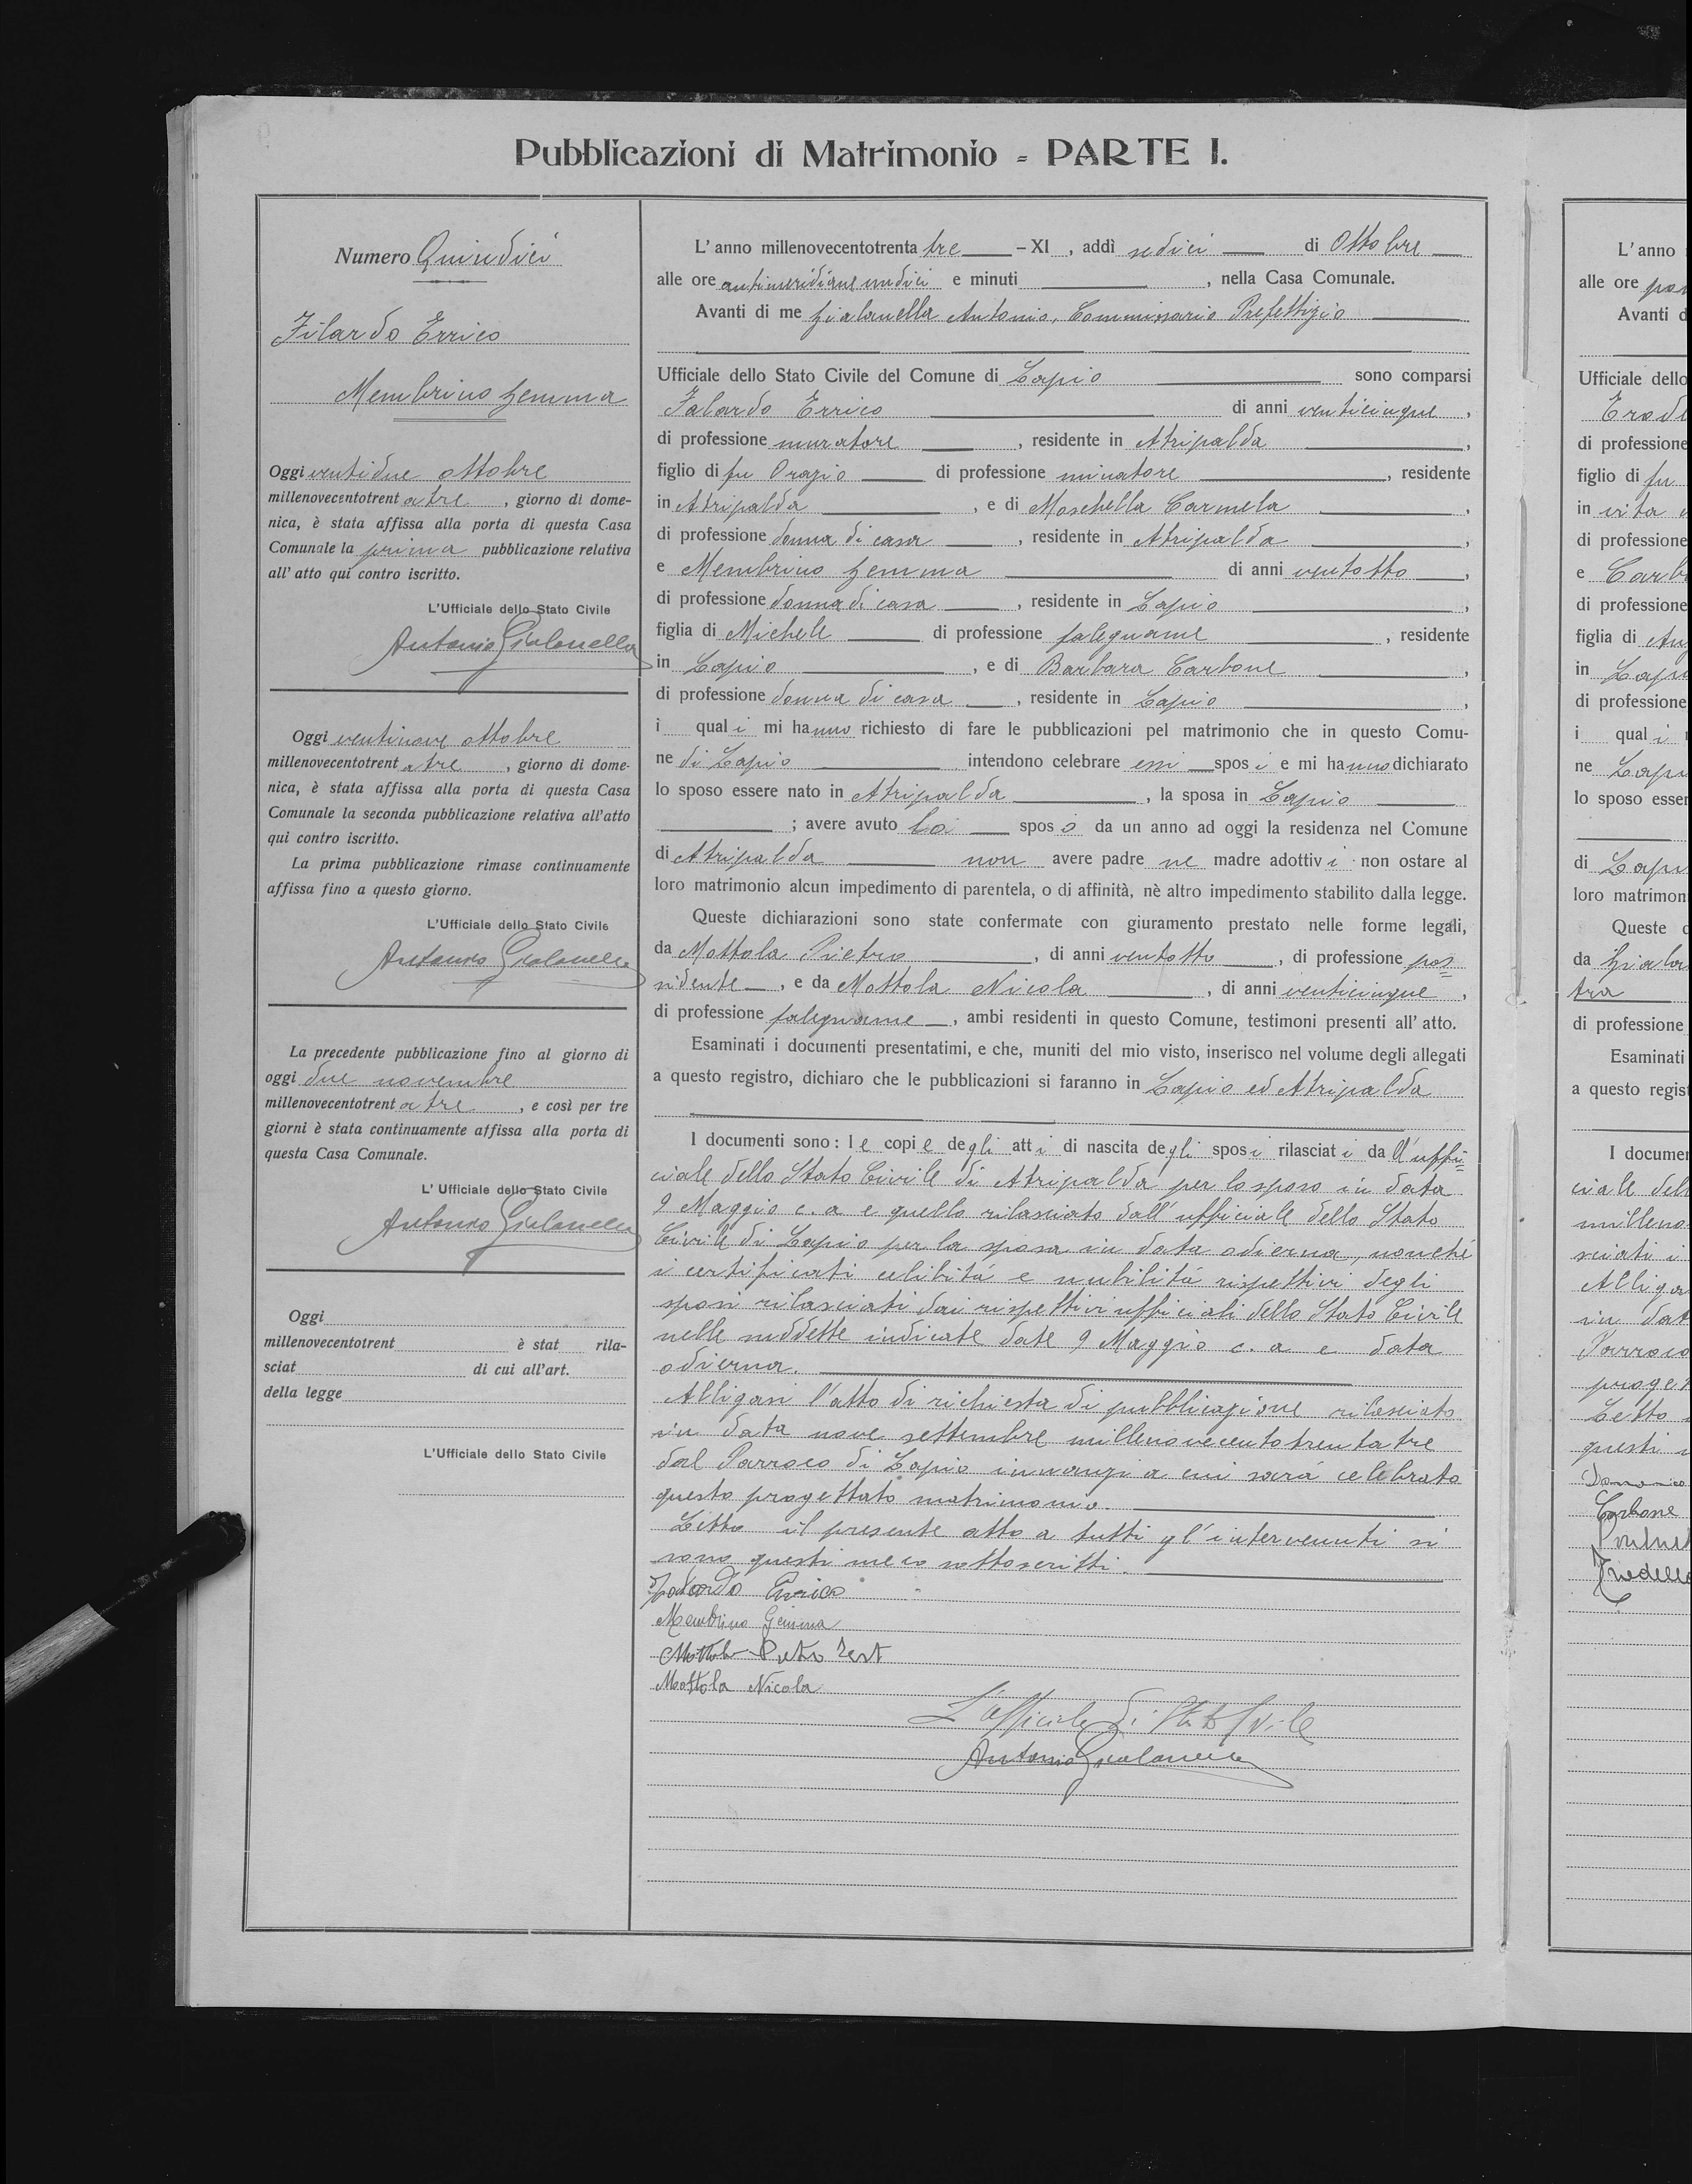 Pubblicazioni di Matrimonio = PARTE I.
Numero Quindici
Filardo Errico
Membrino Gemma
Oggi ventidue ottobre
millenovecentotrent a tre, giorno di dome-
nica, è stata affissa alla porta di questa Casa
Comunale la prima pubblicazione relativa
all' atto qui contro iscritto.
L'Ufficiale dello Stato Civile
Antonio Gialanella
Oggi ventinove ottobre
millenovecentotrent a tre, giorno di dome-
nica, è stata affissa alla porta di questa Casa
Comunale la seconda pubblicazione relativa all'atto
qui contro iscritto.
La prima pubblicazione rimase continuamente
affissa fino a questo giorno.
L'Ufficiale dello Stato Civile
Antonio Gialanella
La precedente pubblicazione fino al giorno di
oggi due novembre
millenovecentotrent a tre, e così per tre
giorni è stata continuamente affissa alla porta di
questa Casa Comunale.
L' Ufficiale dello Stato Civile
Antonio Gialanella
Oggi
millenovecentotrent è stat rila-
sciat di cui all'art.
della legge
L'Ufficiale dello Stato Civile
L' anno millenovecentotrenta tre - XI, addì sedici di Ottobre
alle ore antimeridiane undici e minuti , nella Casa Comunale.
Avanti di me Gialanella Antonio, Commissario Prefettizio
Ufficiale dello Stato Civile del Comune di Lapio sono comparsi
Falardo Errico di anni venticinque,
di professione muratore, residente in Atripalda,
figlio di fu Orazio di professione minatore, residente
in Atripalda, e di Moschella Carmela,
di professione donna di casa, residente in Atripalda,
e Membrino Gemma di anni ventotto,
di professione donna di casa, residente in Lapio,
figlia di Michele di professione falegname, residente
in Lapio, e di Barbara Carbone,
di professione donna di casa, residente in Lapio,
i quali mi hanno richiesto di fare le pubblicazioni pel matrimonio che in questo Comu-
ne di Lapio intendono celebrare essi sposi e mi hanno dichiarato
lo sposo essere nato in Atripalda, la sposa in Lapio
; avere avuto lo sposo da un anno ad oggi la residenza nel Comune
di Atripalda non avere padre ne madre adottivi non ostare al
loro matrimonio alcun impedimento di parentela, o di affinità, nè altro impedimento stabilito dalla legge.
Queste dichiarazioni sono state confermate con giuramento prestato nelle forme legali,
da Mottola Pietro, di anni ventotto, di professione pos=
sidente, e da Mottola Nicola, di anni venticinque,
di professione falegname, ambi residenti in questo Comune, testimoni presenti all' atto.
Esaminati i documenti presentatimi, e che, muniti del mio visto, inserisco nel volume degli allegati
a questo registro, dichiaro che le pubblicazioni si faranno in Lapio ed Atripalda
I documenti sono: le copie degli atti di nascita degli sposi rilasciati dall'uffi=
ciale dello Stato Civile di Atripalda per lo sposo in data
9 Maggio c. a. e quello rilasciato dall'ufficiale dello Stato
Civile di Lapio per la sposa in data odierna, nonché
i certificati celibitá e nubilitá rispettivi degli
sposi rilasciati dai rispettivi ufficiali dello Stato Civile
nelle suddette indicate date 9 Maggio c. a. e data
odierna.
Alligasi l'atto di richiesta di pubblicazione rilasciato
in data nove settembre millenovecentotrentatre
dal Parroco di Lapio innanzi a cui sará celebrato
questo progettato matrimonio.
Letto il presente atto a tutti gl'intervenuti si
sono questi meco sottoscritti.
Falardo Errico
Membrino Gemma
Mottola Pietro test
Mottola Nicola
L'Ufficiale di Stato Civile
Antonio Gialanella
L' anno
alle ore
Avanti
Ufficiale dello
di professione
figlio di fu
in vita
di professione
e
di professione
figlia di
in
di professione
i quali
ne
lo sposo esser
di
loro matrimon
Queste
da
tra
di professione
Esaminati
a questo regist
I documen
ciale dell
milleno
sciati i
Alliga
in dat
Parroco
proget
Letto
questi
Domenico
Carbone